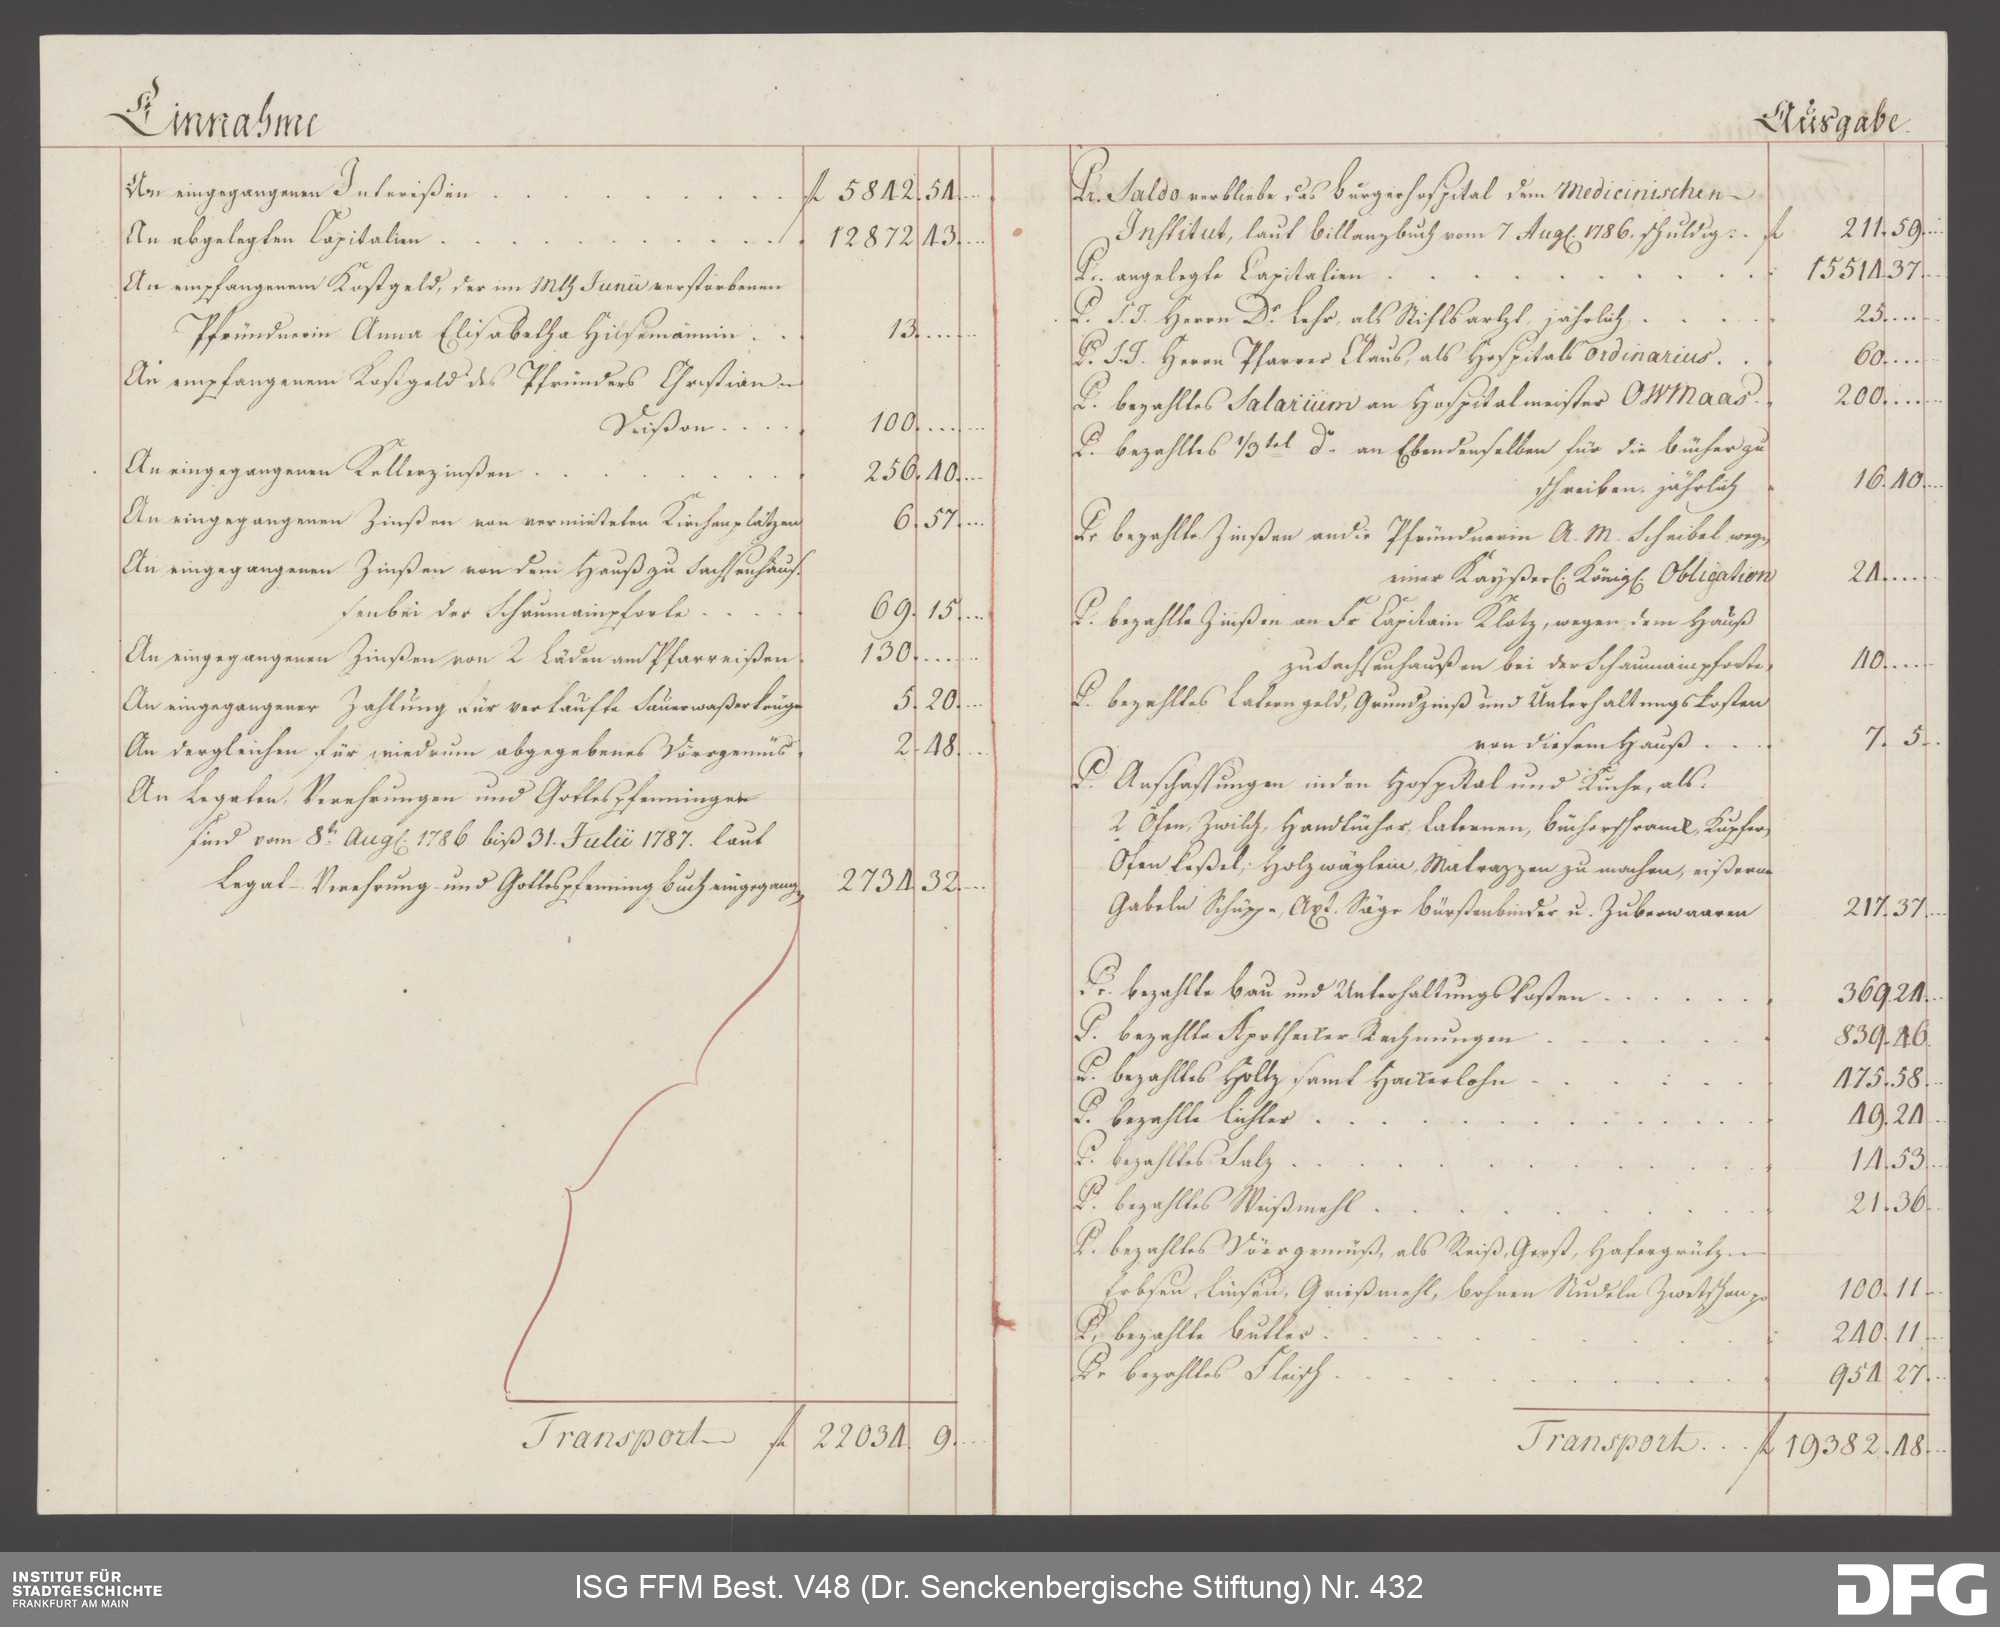 Einnahme
An eingegangenen Intereßen . . . . . . . fl 5842. 54. ...
An abgelegten Capitalien . . . . . . . . 12872. 43. ...
An empfangenem Kostgeld, der im Mth Junii verstorbenen
Pfründnerin Anna Elisabetha Hilsemännin . . 13. ...
An empfangenem Kostgeld des Pfründers Christian
100. ...
An eingegangenen Kellerzinßen . . . . . . 256. 40. ...
An eingegangenen Zinßen von vermieteten Kirchenplätzen 6. 57. ...
An eingegangenen Zinßen von dem Hauß zu Sachsenhauß-
senbei der Schaumainpforte . . . . . 69. 15. ...
An eingegangenen Zinßen von 2 Läden am Pfarreißen . 130. ...
An eingegangener Zahlung für verkaufte Sauerwaßerkrüge 5. 20. ...
An dergleichen für wiedrum abgegebenes Dörrgemüs . 2. 48. ...
An Legaten, Verehrungen und Gottespfenningen
sind vom 8ten Augl. 1786 biß 31. Julii 1787. laut
Legat- Verehrung- und Gottespfenning buch eingegang. 2734. 32. ...
Transport fl 22034. 9. ...
Ausgabe
Pr. Saldo verbliebe das Burgerhospital dem Medicinischen
Institut, laut billanzbuch vom 7 Augl. 1786. schuldig: . fl 211. 59. ...
Pr. angelegte Capitalien . . . . . . . . 15514. 37. ...
P. S.T. Herrn Dr. Lehr, als Stiftsartzt, jährlich . . . . 25. ...
P. S.T. Herrn Pfarrer Claus, als Hospitals ordinarius . . 60. ...
P. bezahltes Salarium an Hospitalmeister OWMaas . 200. ...
P. bezahltes 1/3tel do. an Ebendenselben für die bücher zu
schreiben, jährlich . 16. 40. ...
Pr bezahlte Zinßen an die Pfründnerin A. M. Scheibel wegen
einer Kayßerl. Königl. Obligation 24. ...
P. bezahlte Zinßen an Fr Capitain Klotz, wegen dem Hauß
zu Sachsenhaußen bei der Schaumainpforte . 40. ...
P. bezahltes Laterngeld, Grundzinß und Unterhaltungskosten
von diesem Hauß . . . 7. 5. ..
P. Anschaffungen in den Hospital und Küche, als:
2 Öfen, Zwilch, Handtücher, Laternen, bücherschrank, Kupfer,
Ofen keßel, Holzwäglein, Matrazzen zu machen, eißerne
Gabeln Schüppe, Axt. Säge bürstenbinder u. Zuberwaaren 217. 37. ...
Pr. bezahlte bau und Unterhaltungskosten . . . . . . 369. 24. ...
P. bezahlte Apothecker Rechnungen . . . . . . 839. 46.
P. bezahltes Holtz samt Hackerlohn . . . . . . 475. 58. ...
P. bezahlte lichter . . . . . . . . . . 49. 24. ...
P. bezahltes Salz . . . . . . . . . . 14. 53. ...
P. bezahltes Weißmehl . . . . . . . . 21. 36. ...
P. bezahltes Dörrgemüß, als Reiß, Gerst, Hafergrütze
Erbsen, Linsen, Grießmehl, bohnen Nudeln Zwetschen p 100. 11. ...
P. bezahlte butter . . . . . . . . . 240. 11. ...
Pr bezahltes Fleisch . . . . . . . . . 954. 27. ...
Transport . . . fl 19382. 48. ...
INSTITUT FÜR
STADTGESCHICHTE
FRANKFURT AM MAIN
ISG FFM Best. V48 (Dr. Senckenbergische Stiftung) Nr. 432
DFG